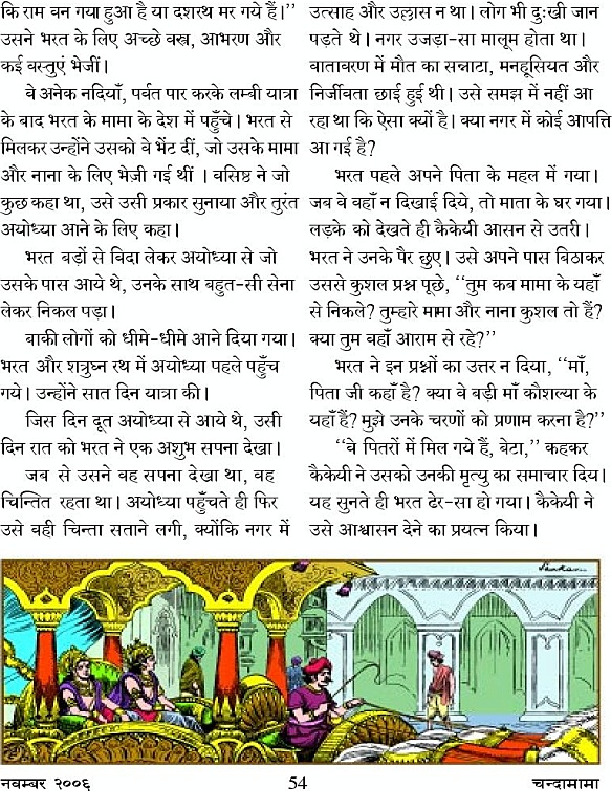 कि राम बन गया हुआ है या दशरथ मर गये हैं।”
उसने भरत के लिए अच्छे वस्त्र, आभरण और
कई वस्तुएं भेजीं।
वे अनेक नदियाँ, पर्वत पार करके लम्बी यात्रा
के बाद भरत के मामा के देश में पहुँचे। भरत से
मिलकर उन्होंने उसको वे भेंट दीं, जो उसके मामा
और नाना के लिए भेजी गई थीं । वसिष्ठ ने जो
कुछ कहा था, उसे उसी प्रकार सुनाया और तुरंत
अयोध्या आने के लिए कहा।
भरत बड़ों से विदा लेकर अयोध्या से जो
उसके पास आये थे, उनके साथ बहुत-सी सेना
लेकर निकल पड़ा।
बाकी लोगों को धीमे-धीमे आने दिया गया।
भरत और शत्रुघ्न रथ में अयोध्या पहले पहुँच
गये। उन्होंने सात दिन यात्रा की।
जिस दिन दूत अयोध्या से आये थे, उसी
दिन रात को भरत ने एक अशुभ सपना देखा।
जब से उसने वह सपना देखा था, वह
चिन्तित रहता था। अयोध्या पहुँचते ही फिर
उसे वही चिन्ता सताने लगी, क्योंकि नगर में
उत्साह और उल्लास न था। लोग भी दुःखी जान
पड़ते थे। नगर उजड़ा-सा मालूम होता था।
वातावरण में मौत का सन्नाटा, मनहूसियत और
निर्जीवता छाई हुई थी। उसे समझ में नहीं आ
रहा था कि ऐसा क्यों है। क्या नगर में कोई आपत्ति
आ गई है?
भरत पहले अपने पिता के महल में गया।
जब वे वहाँ न दिखाई दिये, तो माता के घर गया।
लड़के को देखते ही कैकेयी आसन से उतरी।
भरत ने उनके पैर छुए। उसे अपने पास बिठाकर
उससे कुशल प्रश्न पूछे, “तुम कब मामा के यहाँ
से निकले? तुम्हारे मामा और नाना कुशल तो हैं?
क्या तुम वहाँ आराम से रहे?”
भरत ने इन प्रश्नों का उत्तर न दिया, “माँ,
पिता जी कहाँ है? क्या वे बड़ी माँ कौशल्या के
यहाँ हैं? मुझे उनके चरणों को प्रणाम करना है?”
“वे पितरों में मिल गये हैं, बेटा,” कहकर
कैकेयी ने उसको उनकी मृत्यु का समाचार दिया।
यह सुनते ही भरत ढेर-सा हो गया। कैकेयी ने
उसे आश्वासन देने का प्रयत्न किया।
Sankar
नवम्बर २००६
54
चन्दामामा